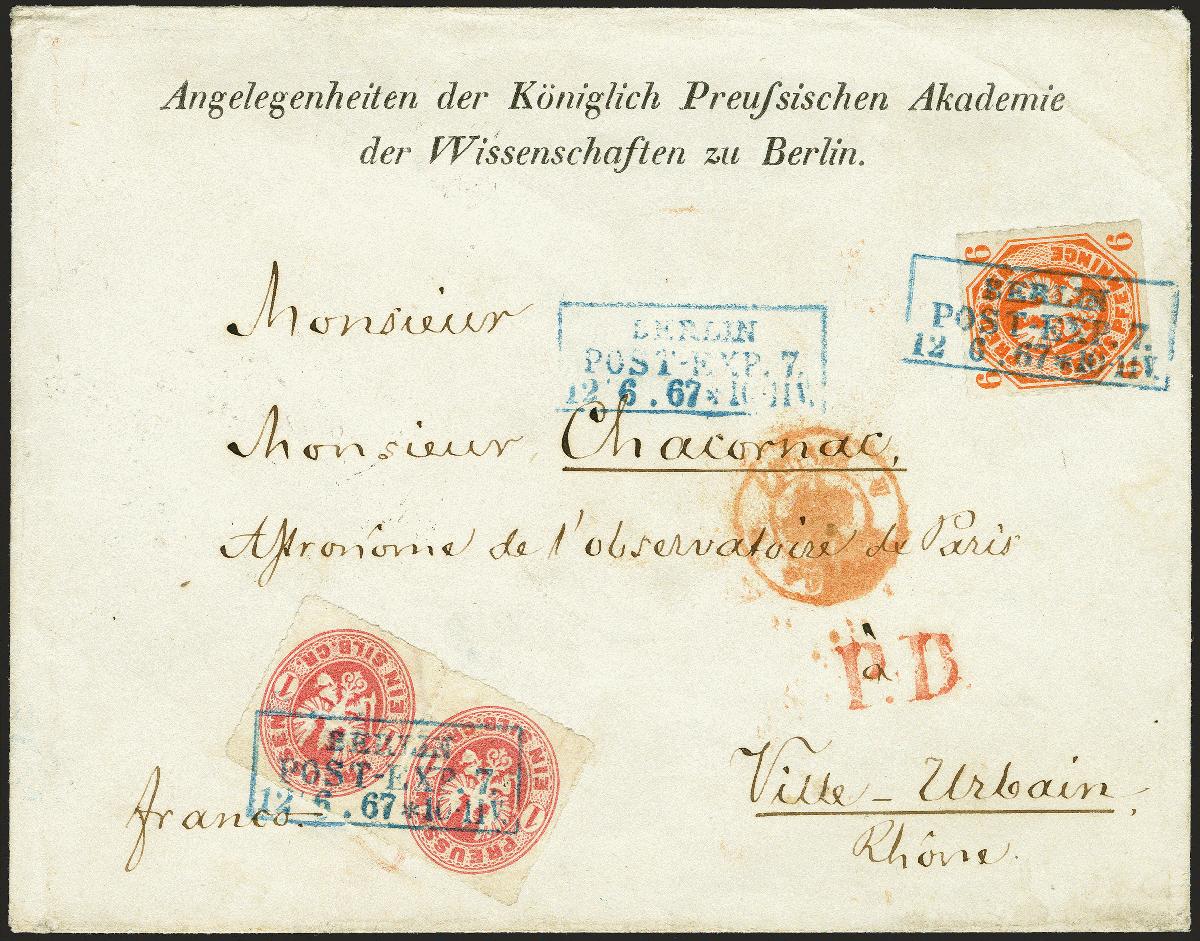 Angelegenheiten der Königlich Preuſsischen Akademie
der Wissenschaften zu Berlin.
6 6
PFENNINGE
6
BERLIN
POST-EXP. 7.
12 6 . 67 * 10-11V.
Monsieur
BERLIN
POST-EXP. 7.
12 6 . 67 * 10-11V.
Monsieur Chacornac,
Aſtronôme de l'observatoire de Paris
à
P.D.
1 EIN SILB.GR.
EIN 1 PREUSS
BERLIN
POST-EXP. 7.
12 6 . 67 * 10-11V.
franco.
Ville-Urbain,
Rhône.